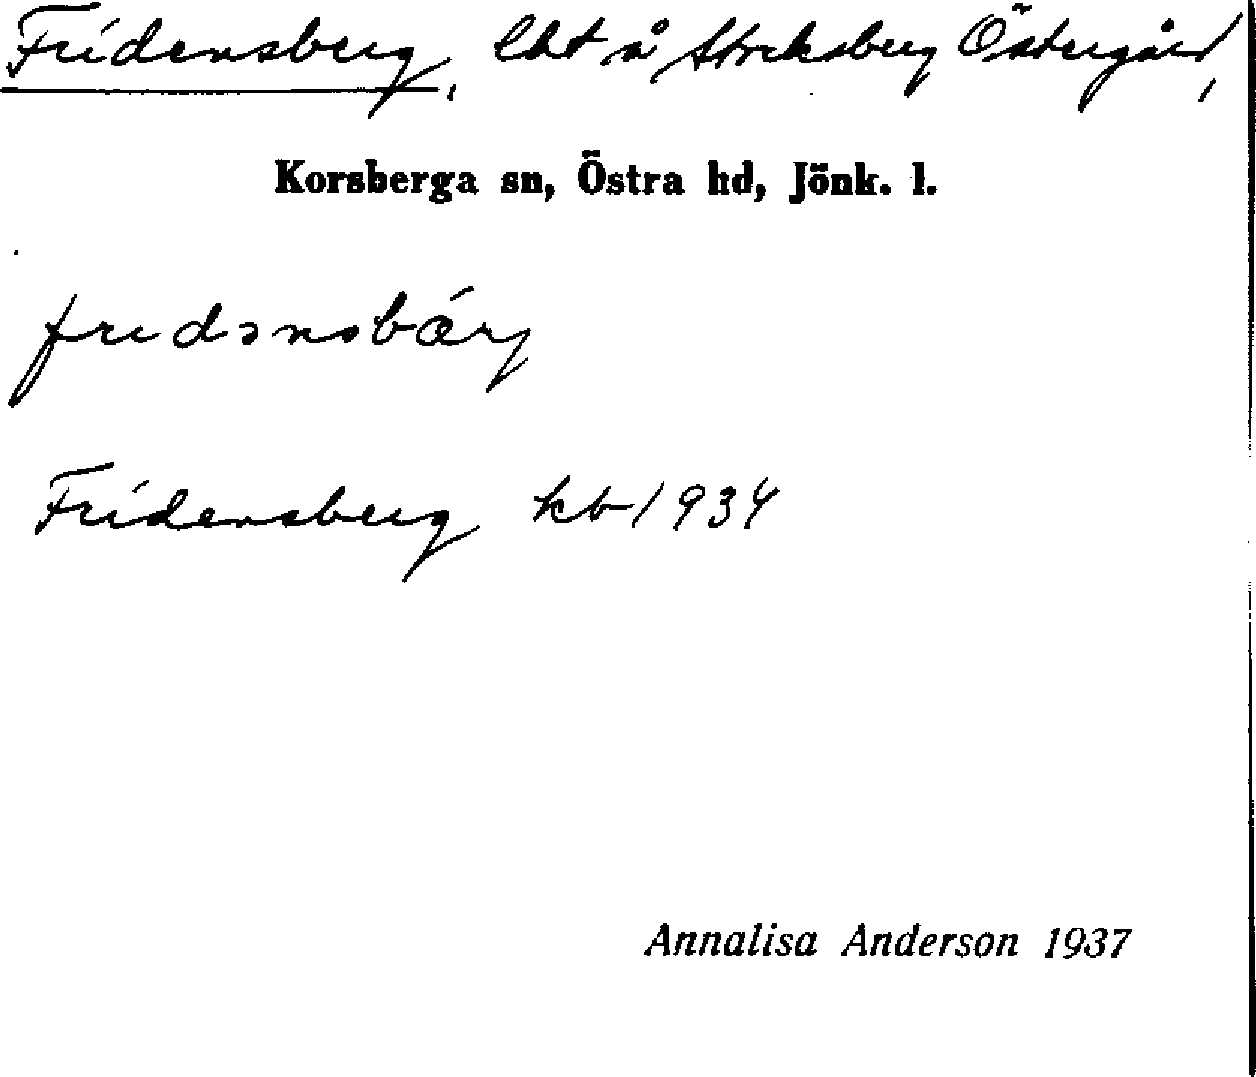 Fridensberg, lht å Stocksberg Östergård,
Korsberga sn, Östra hd, Jönk. l.
fridənsbǽrj
Fridensberg kb 1934
Annalisa Anderson 1937